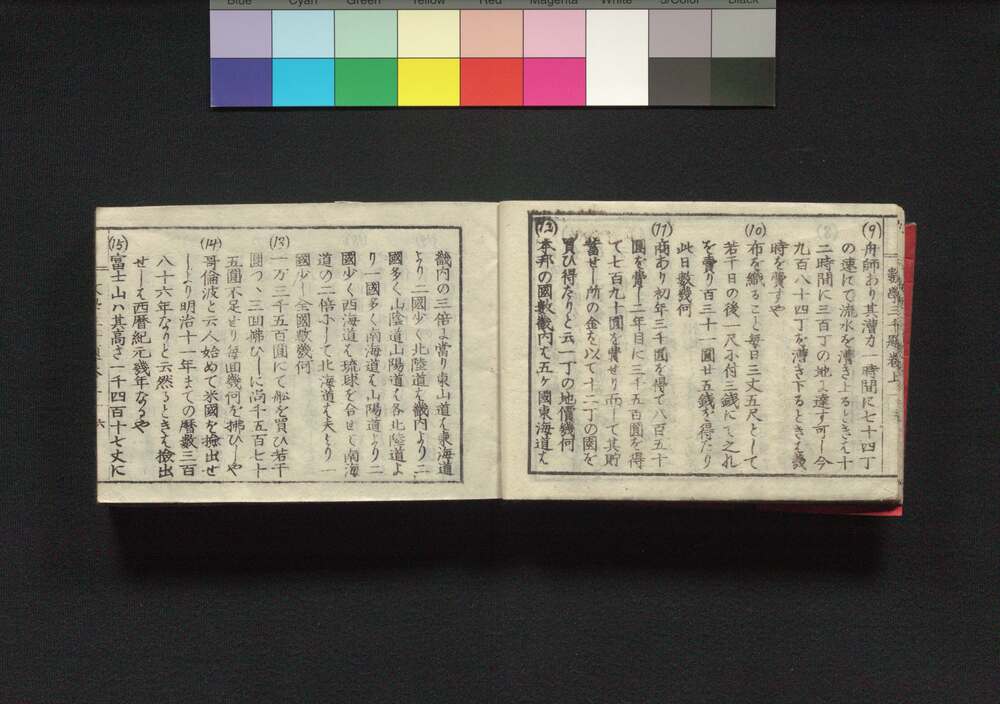 Blue Cyan Green Yellow Red Magenta White 3/Color Black
數學三千題卷上
(9) 舟師あり其漕力一時間に七十四丁
の速にて流水を漕き上るときハ十
二時間に三百丁の地に達す可し今
九百八十四丁を漕き下るときハ幾
時を費すや
(10) 布を織ること毎日三丈五尺として
若干日の後一尺に付三錢にて之れ
を賣り百三十一圓廿五錢を得たり
此日數幾何
(11) 商あり初年三千圓を得て八百五十
圓を費し二年目に三千五百圓を得
て七百九十圓を費せり而して其貯
蓄せし所の金を以て十二丁の園を
買ひ得たりと云一丁の地價幾何
(12) 本邦の國數畿内ハ五ヶ國東海道ハ
畿内の三倍に當り東山道ハ東海道
より二國少く北陸道ハ畿内より二
國多く山陰道山陽道ハ各北陸道よ
り一國多く南海道ハ山陽道より二
國少く西海道ハ琉球を合せて南海
道の二倍にして北海道ハ夫より一
國少し全國數幾何
(13) 一万三千五百圓にて舩を買ひ若干
圓つヽ三回拂ひしに尚千五百七十
五圓不足せり毎回幾何を拂ひしや
(14) 哥倫波と云人始めて米國を撿出せ
しより明治十一年までの暦數三百
八十六年なりと云然るときハ撿出
せしハ西暦紀元幾年なるや
(15) 富士山ハ其高さ一千四百十七丈に